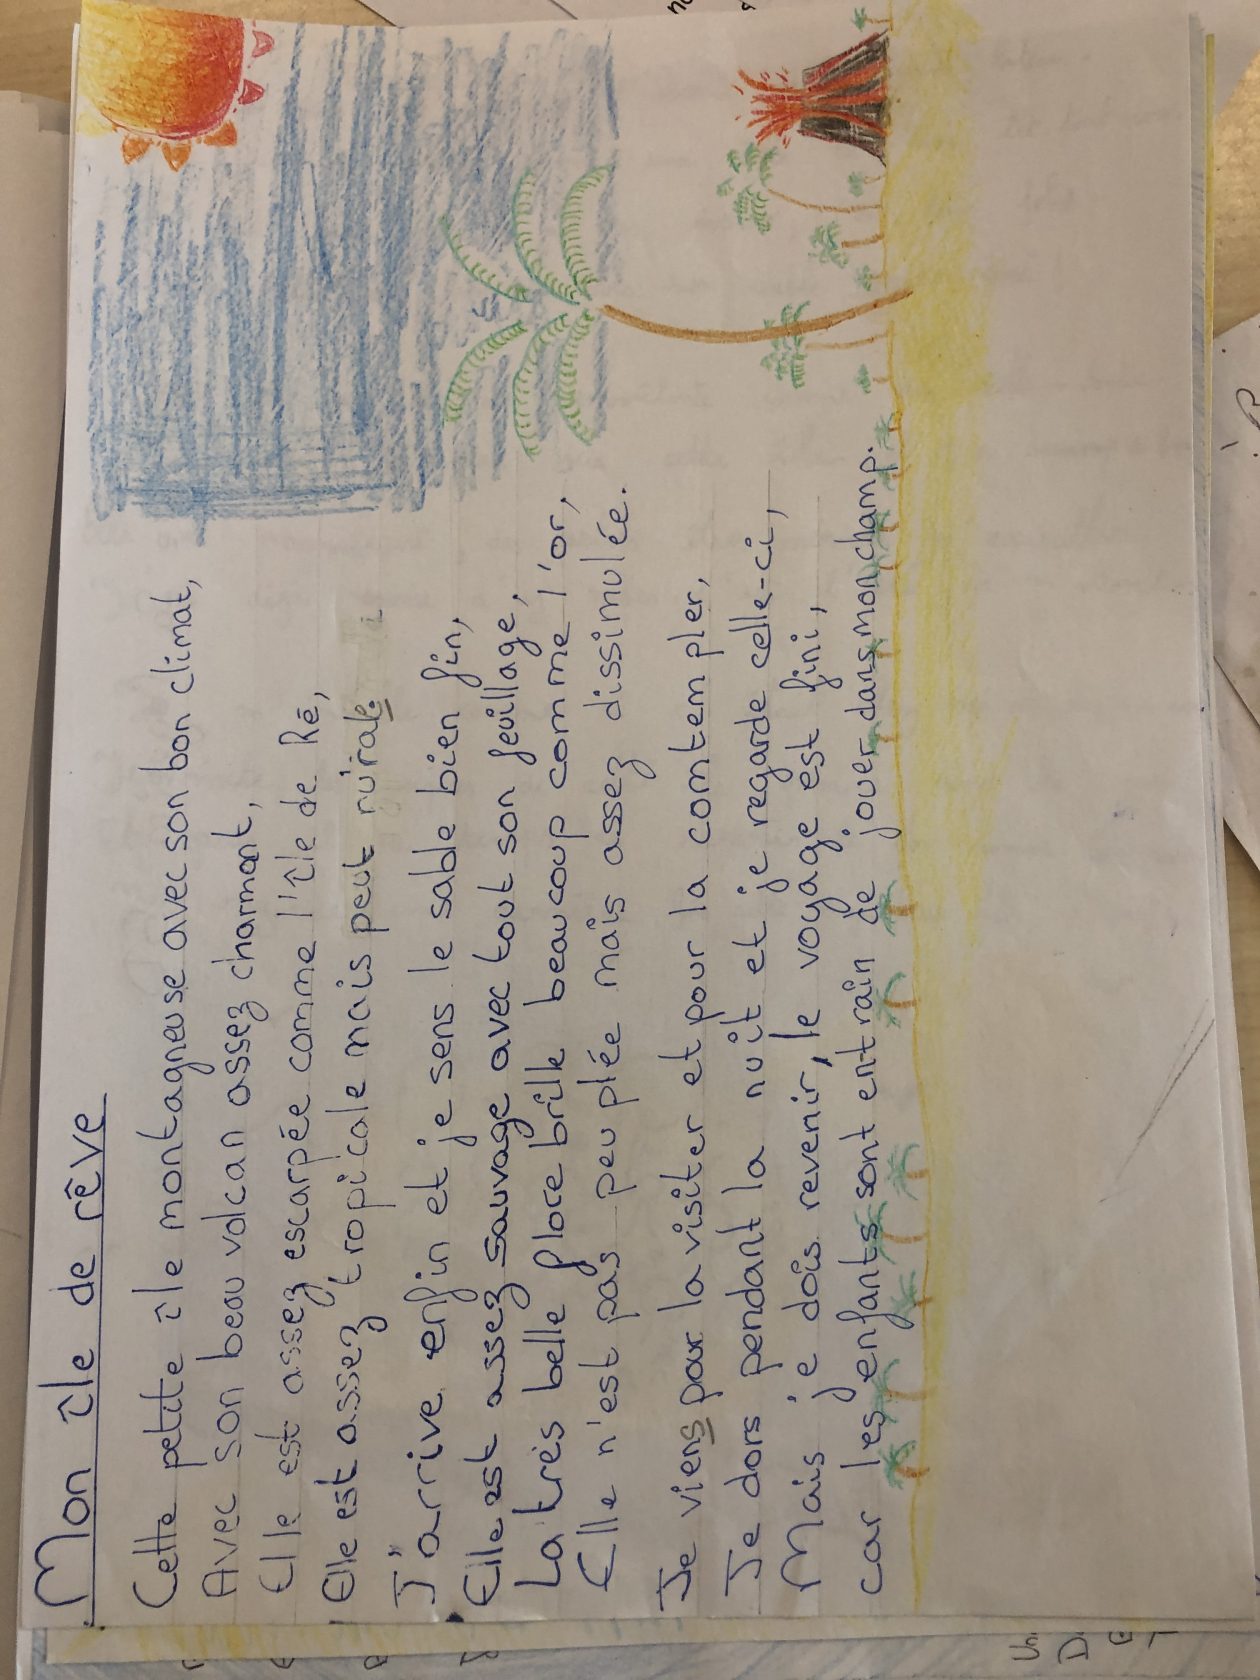 Mon île de rêve
Cette petite île montagneuse avec son bon climat,
Avec son beau volcan assez charmant,
Elle est assez escarpée comme l'île de Ré,
Elle est assez tropicale mais peut rurale.
J'arrive enfin et je sens le sable bien fin,
Elle est assez sauvage avec tout son feuillage,
La très belle flore brille beaucoup comme l'or,
Elle n'est pas peuplée mais assez dissimulée.
Je viens pour la visiter et pour la comtempler,
Je dors pendant la nuit et je regarde celle-ci,
Mais je dois revenir, le voyage est fini,
car les enfants sont entrain de jouer dans mon champ.